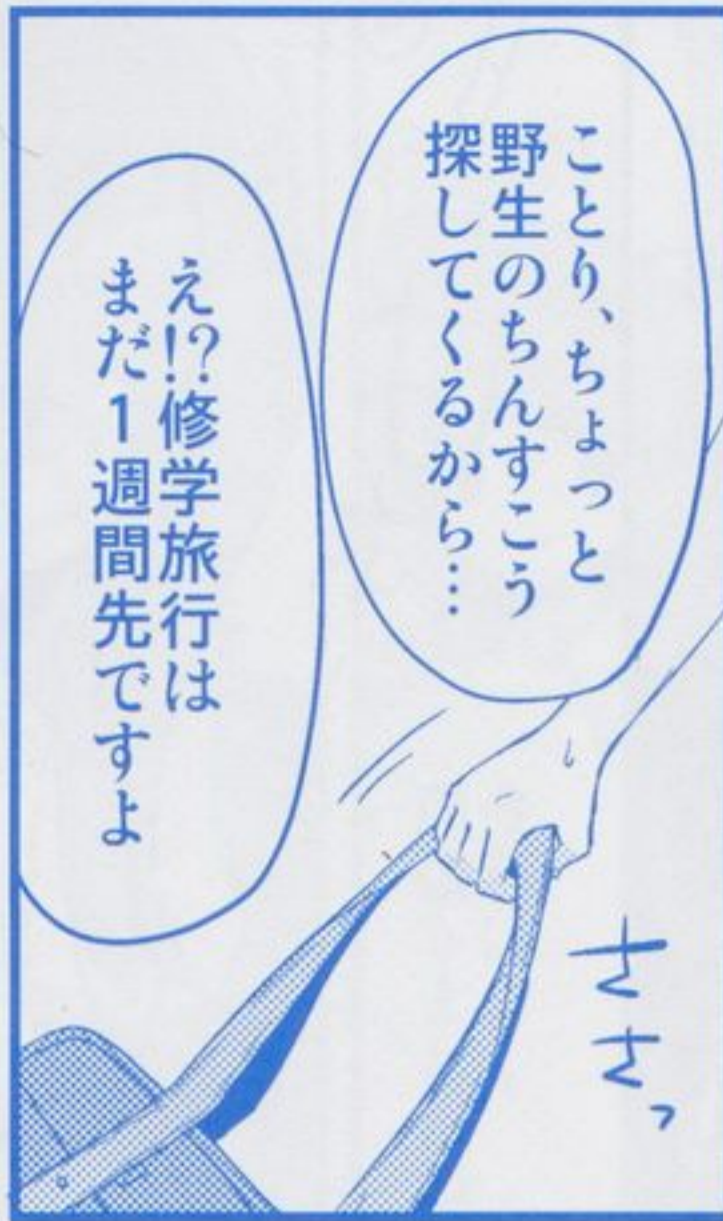 ことり、ちょっと
野生のちんすこう
探してくるから…
え!?修学旅行は
まだ1週間先ですよ
ささっ